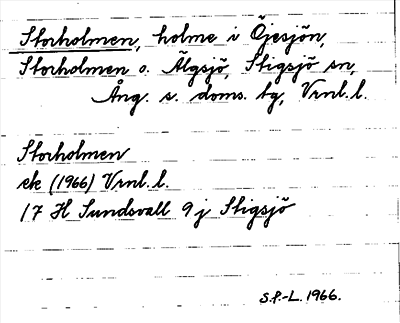 Storholmen, holme i Öjesjön,
Storholmen o. Älgsjö, Stigsjö sn,
Ång. s. doms. tg, Vrnl. l.
Storholmen
ek (1966) Vrnl. l.
17 H Sundsvall 9 j Stigsjö
S.P.-L. 1966.